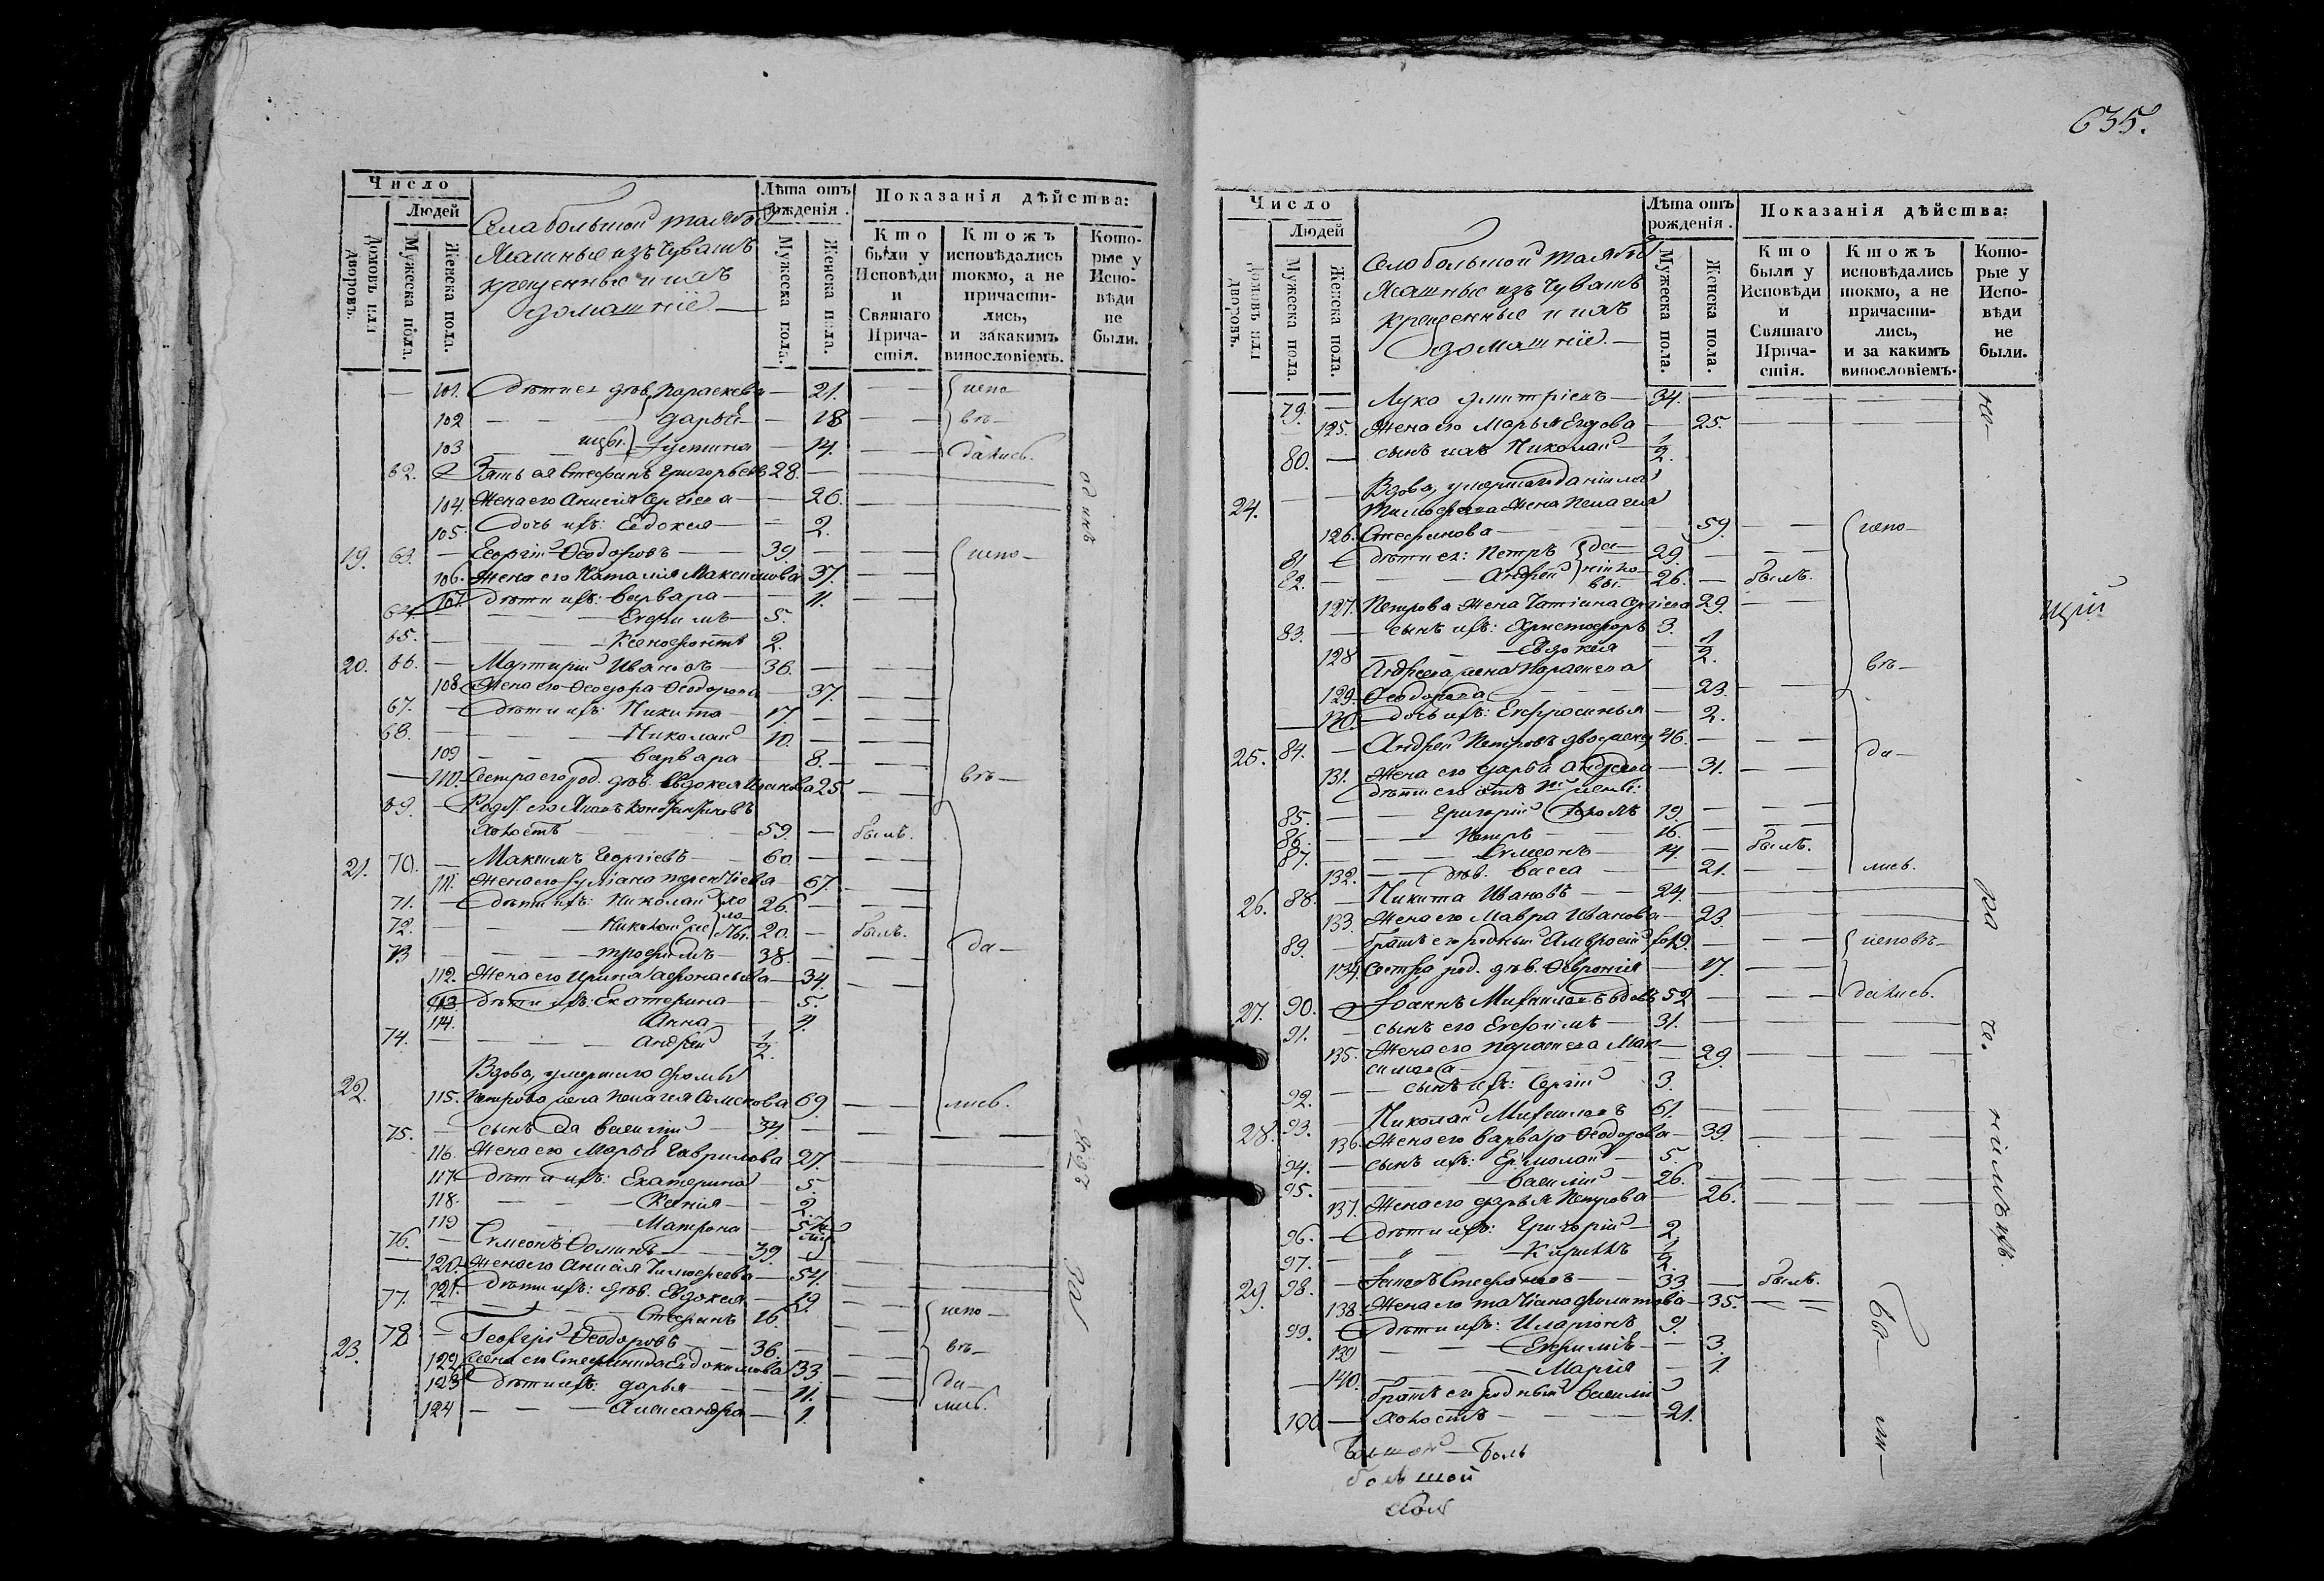 635.
Число
Людей
Домовъ или дворовъ.
Мужеска пола.
Женска пола.
Села большой таябы
Ясашные изъ Чувашъ
крещенные и ихъ
домашніе.
Лѣта отъ рожденія.
Мужеска пола.
Женска пола.
Показанія дѣйства:
Кто были у Исповѣди и Святаго Причастія.
Ктожъ исповѣдались токмо, а не причастились, и закакимъ винословіемъ.
Которые у Исповѣди не были.
101. Дѣти ея дѣв. Параскева — 21. испо
102 — — Дарья — 18 вѣ—
103 цы. Іустина — 14. дались.
62. Зять ея Стефанъ Григорьевъ 28. —
104. Жена его Анисія Сергіева — 26.
105. Дочь ихъ: Евдокея — 2.
19. 63. — Георгій Ѳеодоровъ — 39 — испо—
106. Жена его Наталия Максимова 37.
107. Дѣти ихъ: Варвара — 11.
64. — Ефимъ — 5.
65. — Ксенофонтъ 2.
20. 66. — Мартирій Ивановъ — 36.
108. Жена его Ѳеодора Ѳеодорова — 37.
67. — Дѣти ихъ: Никита — 17.
68. — Николай — 10.
109 — Варвара — 8.
110. Сестра его род. дѣв. Евдокея Иванова 25. вѣ—
69. —
Холостъ — 59. — былъ.
21. 70. — Максимъ Георгіевъ — 60
111. Жена его Іуліана Терентіева — 67.
71. — Дѣти ихъ: Николай хо 26.
72. — 20. — былъ.
73 — Трофимъ — 38 да—
112. Жена его Ирина Афонасьева — 34.
113. Дѣти ихъ: Екатерина — 5.
114. Анна
74. — Андрей 1/2.
Вдова, умершаго Фомы
22. 115. Петрова жена Пелагея Семенова 69. — лись.
75. — сынъ ея Василій — 34.
116. Жена его Марѳа Гаврилова 27.
117. Дѣти ихъ: Екатерина — 5
118. — Ксения — 2.
119 — Матрона — 5
76. — Симеонъ Ѳоминъ — 39.
120. Жена его Анисія Тимофеева — 54.
121. Дѣти ихъ: дѣв. Евдокея — 19
77. Стефанъ 16. испо—
23. 78 — Георгій Ѳеодоровъ — 36. вѣ—
122 Жена его Стефанида Евдокимова 33.
123 Дѣти ихъ: Дарья — 11. да—
124 — — Александра — 1. лись.
Число
Людей
Домовъ или дворовъ.
Мужеска пола.
Женска пола.
Села большой таябы
Ясашные изъ Чувашъ
крещенные и ихъ
домашніе.—
Лѣта отъ рожденія.
Мужеска пола.
Женска пола.
Показанія дѣйства:
Кто были у Исповѣди и Святаго Причастія.
Ктожъ исповѣдались токмо, а не причастились, и за какимъ винословіемъ.
Которые у Исповѣди не были.
79. — Лука Дмитріевъ — 34. —
125. Жена его Марья Егорова — 25.
80. — сынъ ихъ Николай — 1/2
Вдова, умершаго Даніила
24. Тимофеева жена Пелагея
126. Стефанова — 59. испо—
81 — Дѣти ея: Петръ 29.
82. — Андрей 26. — былъ.
127. Петрова жена Татіана Сергіева 29.
83. — сынъ ихъ: Христофоръ 3.
128 — Евдокея 1/2.
Андреева жена Параскева вѣ—
129. Ѳеодорова — 23.
130. — дочь ихъ: Евфросинья — 2.
25. 84. — Андрей Петровъ 46. да—
131. Жена его Дарья Андреева — 31.
Дѣти его отъ 1й жены:
85. — Григорій 19.
86. — Петръ — 16.
87. — Симеонъ — 14. — былъ.
132. — дѣв. Васса — 21. лись.
26. 88. — Никита Ивановъ — 24.
133. Жена его Мавра Иванова — 23.
89. — братъ его родный Амвросій 19. исповѣ—
134. Сестра род. дѣв. Ѳеврония — 17.
27. 90. — Іоаннъ Михайловъ вдовъ 52 дались.
91. — сынъ его Ефимъ — 31.
135. Жена его Параскева Мак—
симова — 29.
92. — сынъ ихъ: Сергій 3.
28. 93. — Николай Михайловъ 61.
136. Жена его Варвара Ѳеодорова — 39.
94. — сынъ ихъ: Ермолай — 5.
95. — Василій — 26.
137. Жена его Дарья Петрова — 26.
96. — Дѣти ихъ: Григорій — 2.
97. — Кирилъ 1/2.
29. 98. — Стефановъ — 33 — былъ.
138. Жена его Татіана Филипова — 35.
99. — Дѣти ихъ: Иларіонъ 9.
139 — Евфимія — 3.
140. — Марія — 1.
братъ его родный Василій
100. — холостъ — 21.
большой